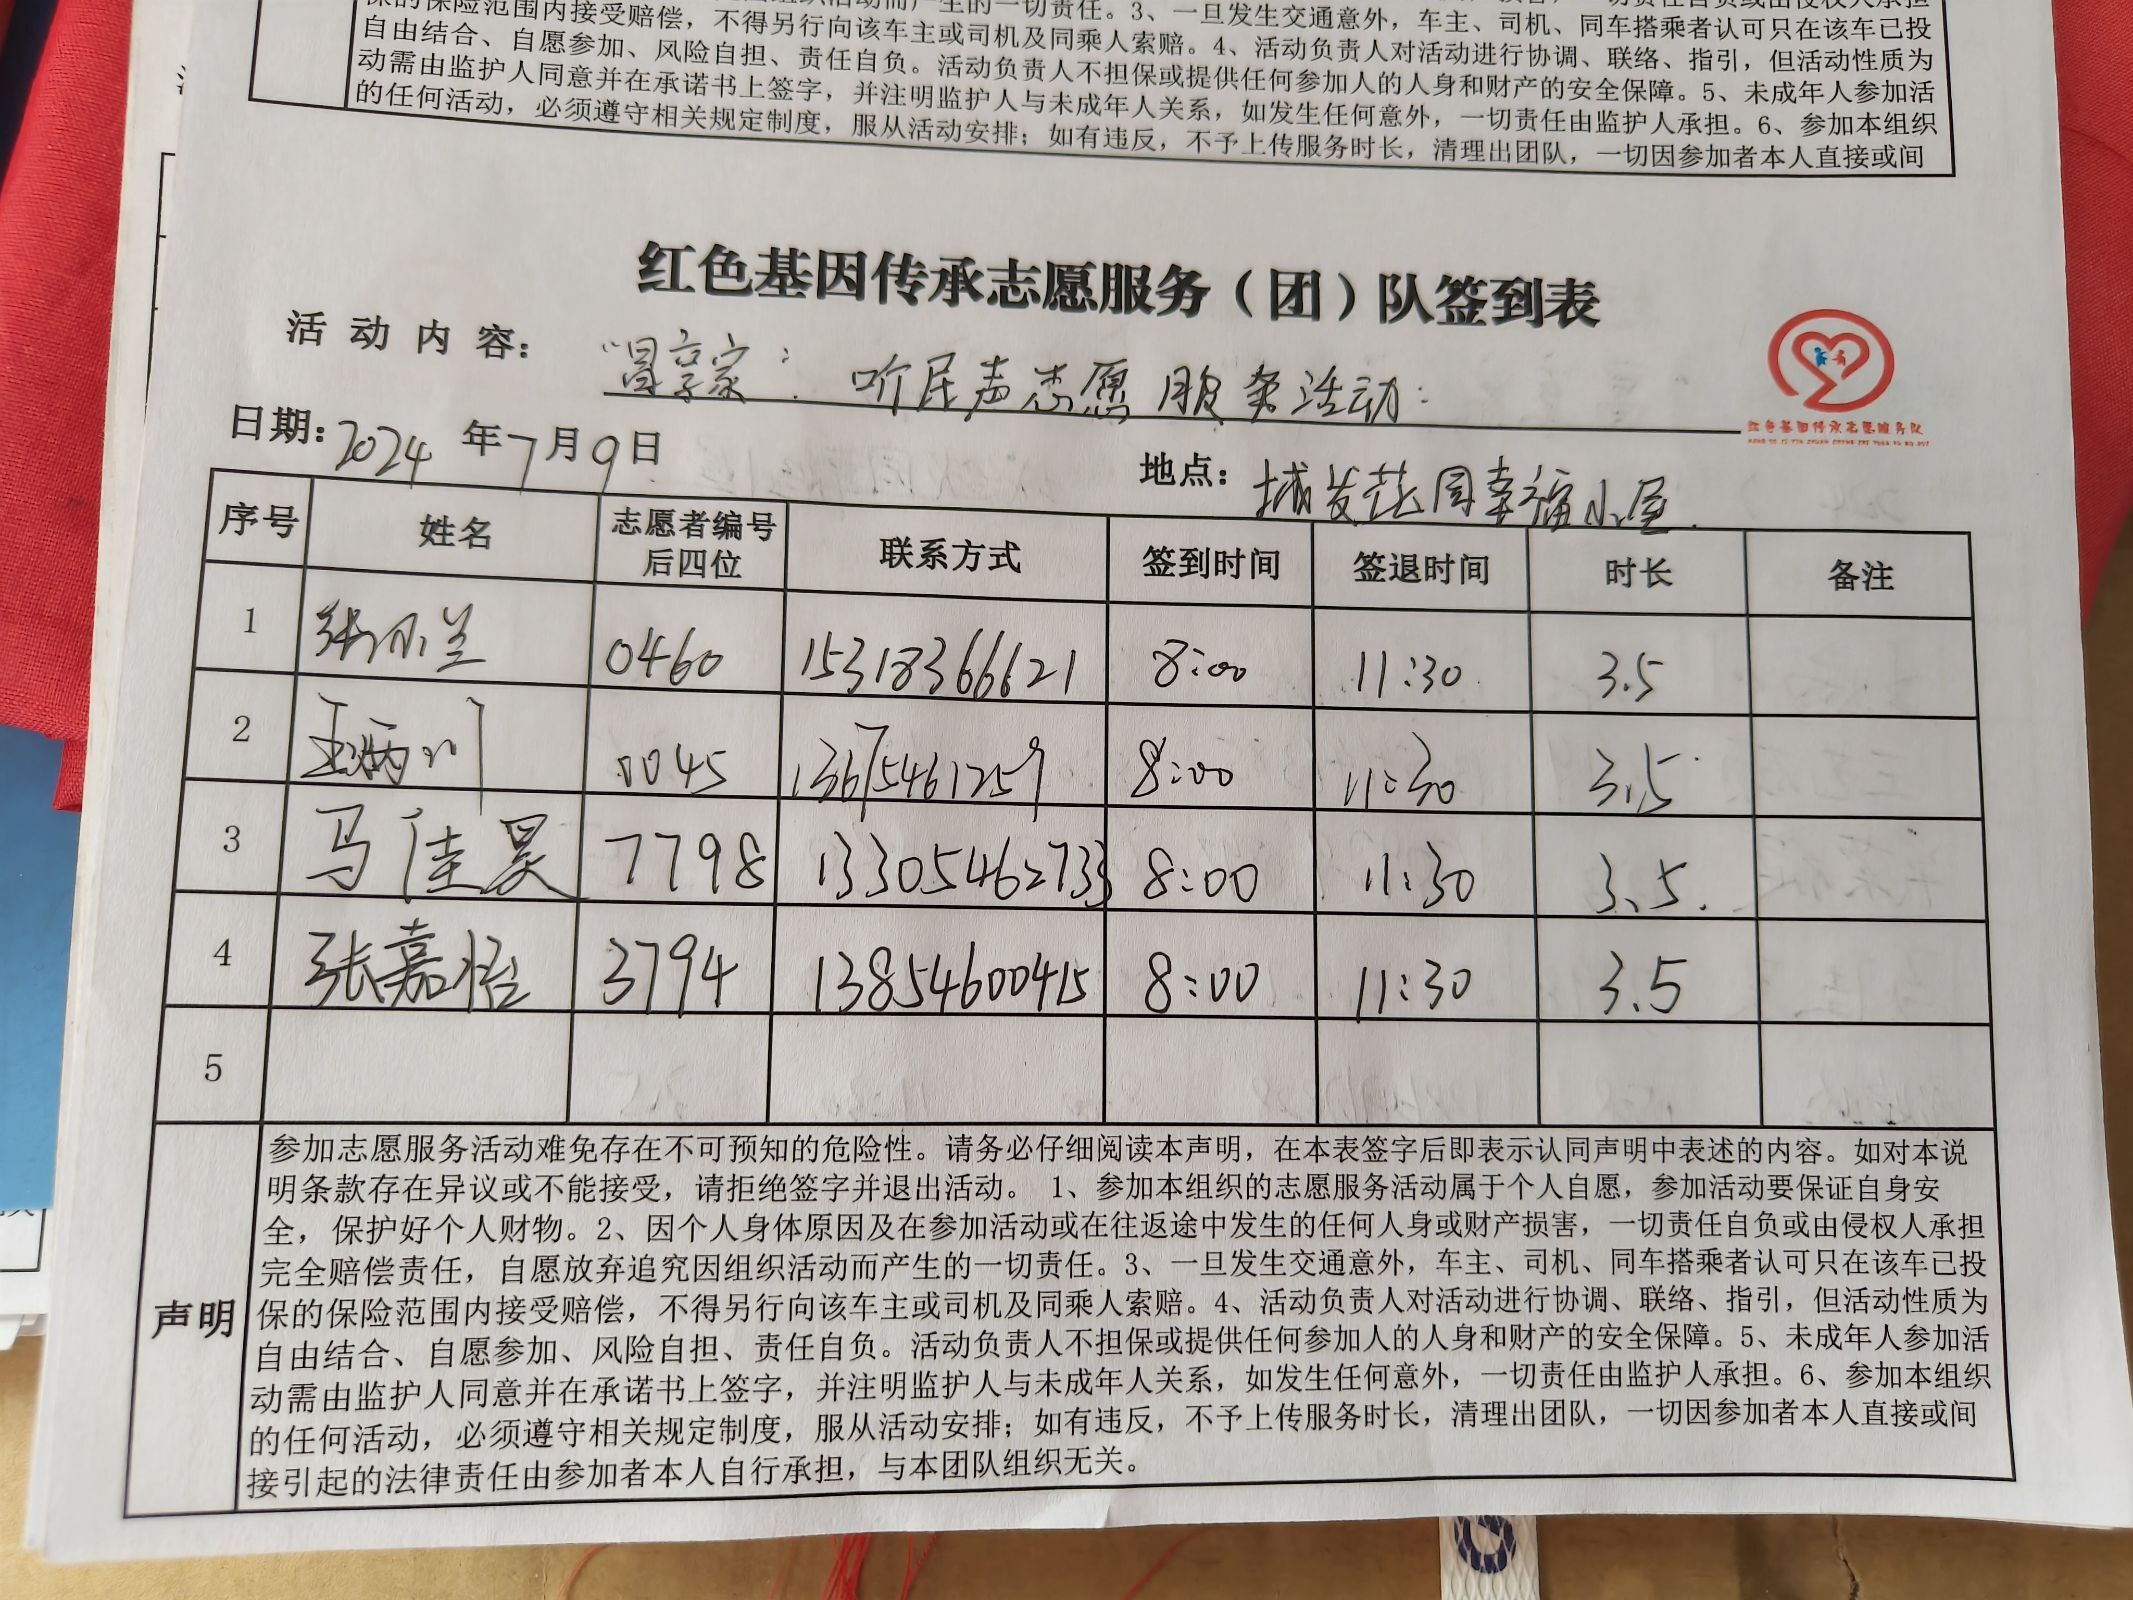 保的保险范围内接受赔偿，不得另行向该车主或司机及同乘人索赔。4、活动负责人对活动进行协调、联络、指引，但活动性质为
自由结合、自愿参加、风险自担、责任自负。活动负责人不担保或提供任何参加人的人身和财产的安全保障。5、未成年人参加活
动需由监护人同意并在承诺书上签字，并注明监护人与未成年人关系，如发生任何意外，一切责任由监护人承担。6、参加本组织
的任何活动，必须遵守相关规定制度，服从活动安排；如有违反，不予上传服务时长，清理出团队，一切因参加者本人直接或间
红色基因传承志愿服务（团）队签到表
活动内容： 听民声志愿服务活动
红色基因传承志愿服务队
日期：2024年7月9日
地点：城发花园幸福小屋
序号 姓名 志愿者编号后四位 联系方式 签到时间 签退时间 时长 备注
1 0460 15318366621 8:00 11:30 3.5
2 0045 13675461259 8:00 11:30 3.5
3 马佳昊 7798 13305462733 8:00 11:30 3.5
4 张嘉怡 3794 13854600415 8:00 11:30 3.5
5
声明
参加志愿服务活动难免存在不可预知的危险性。请务必仔细阅读本声明，在本表签字后即表示认同声明中表述的内容。如对本说
明条款存在异议或不能接受，请拒绝签字并退出活动。 1、参加本组织的志愿服务活动属于个人自愿，参加活动要保证自身安
全，保护好个人财物。2、因个人身体原因及在参加活动或在往返途中发生的任何人身或财产损害，一切责任自负或由侵权人承担
完全赔偿责任，自愿放弃追究因组织活动而产生的一切责任。3、一旦发生交通意外，车主、司机、同车搭乘者认可只在该车已投
保的保险范围内接受赔偿，不得另行向该车主或司机及同乘人索赔。4、活动负责人对活动进行协调、联络、指引，但活动性质为
自由结合、自愿参加、风险自担、责任自负。活动负责人不担保或提供任何参加人的人身和财产的安全保障。5、未成年人参加活
动需由监护人同意并在承诺书上签字，并注明监护人与未成年人关系，如发生任何意外，一切责任由监护人承担。6、参加本组织
的任何活动，必须遵守相关规定制度，服从活动安排；如有违反，不予上传服务时长，清理出团队，一切因参加者本人直接或间
接引起的法律责任由参加者本人自行承担，与本团队组织无关。